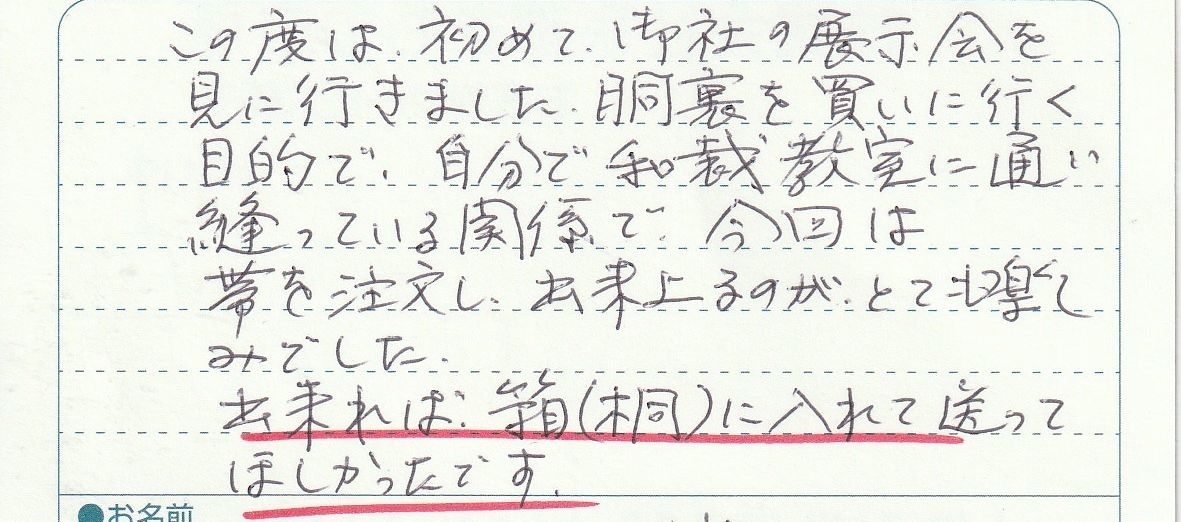 この度は、初めて、御社の展示会を
見に行きました。胴裏を買いに行く
目的で、自分で和裁教室に通い
縫っている関係で、今回は
帯を注文し、出来上るのが、とても楽し
みでした。
出来れば、箱(桐)に入れて送って
ほしかったです。
●お名前